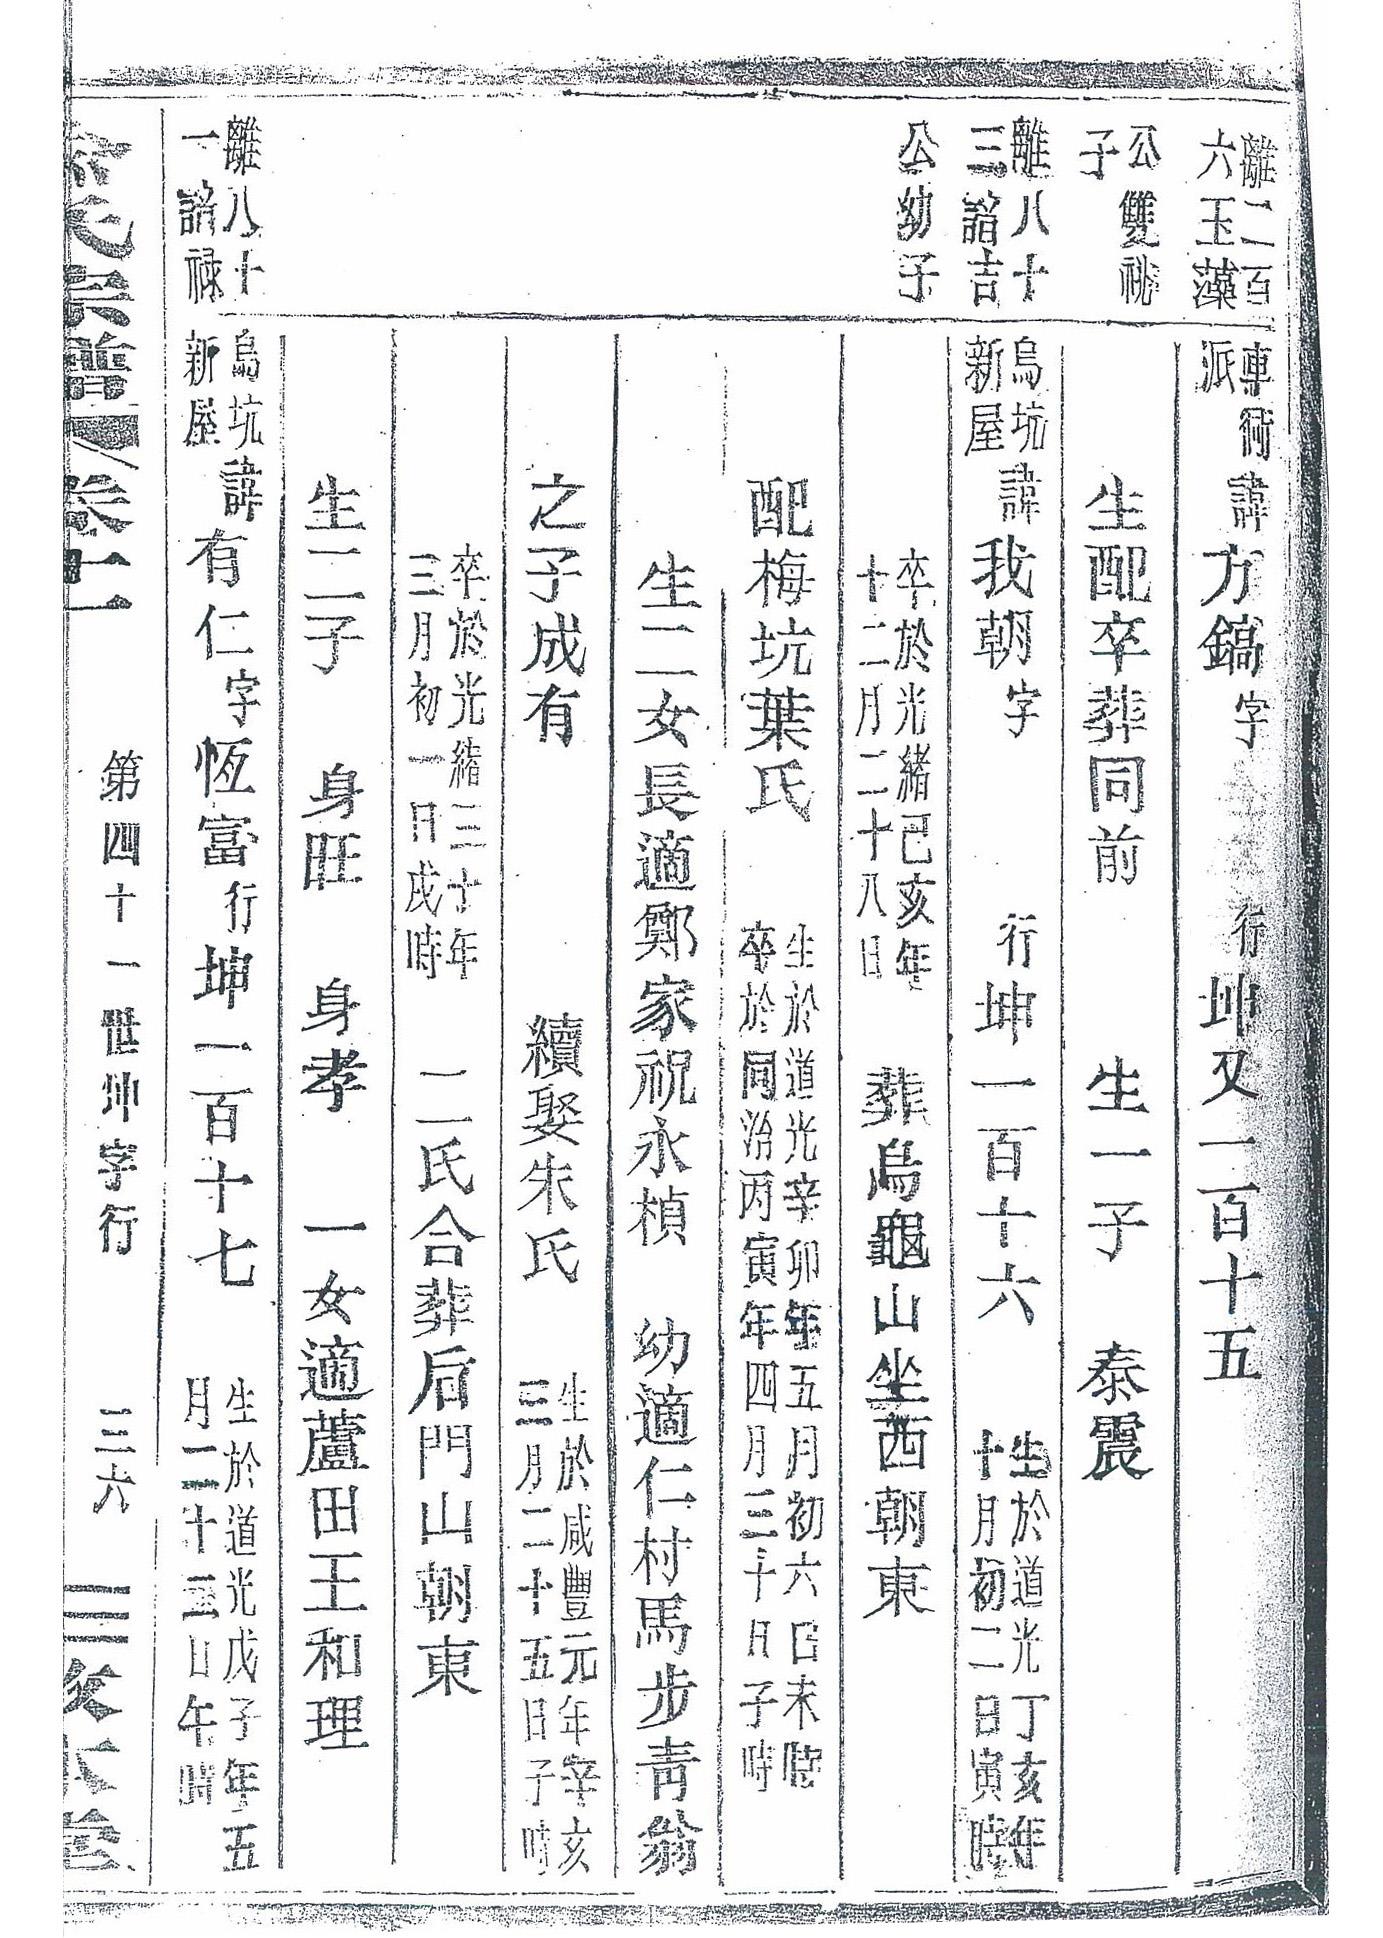 離二百
六玉藻
車衕派
諱方鎬字 行坤又一百十五
公雙祧
子
生配卒葬同前 生一子 泰震
離八十
三諮吉
烏坑
新屋
諱我朝字 行坤一百十六 生於道光丁亥年
十月初二日寅時
公幼子
卒於光緒己亥年
十二月二十八日
葬烏龜山坐西朝東
配梅坑葉氏 生於道光辛卯年五月初六日未時
卒於同治丙寅年四月三十日子時
生二女長適鄭家祝永楨 幼適仁村馬步青翁
之子成有 續娶朱氏 生於咸豐元年辛亥
三月二十五日子時
卒於光緒三十年
三月初一日戌時
二氏合葬后門山朝東
生二子 身旺 身孝 一女適蘆田王和理
離八十
一諮祿
烏坑
新屋
諱有仁字恆富行坤一百十七 生於道光戊子年五
月二十三日午時
氏宗譜 卷十一 第四十一世坤字行 三六